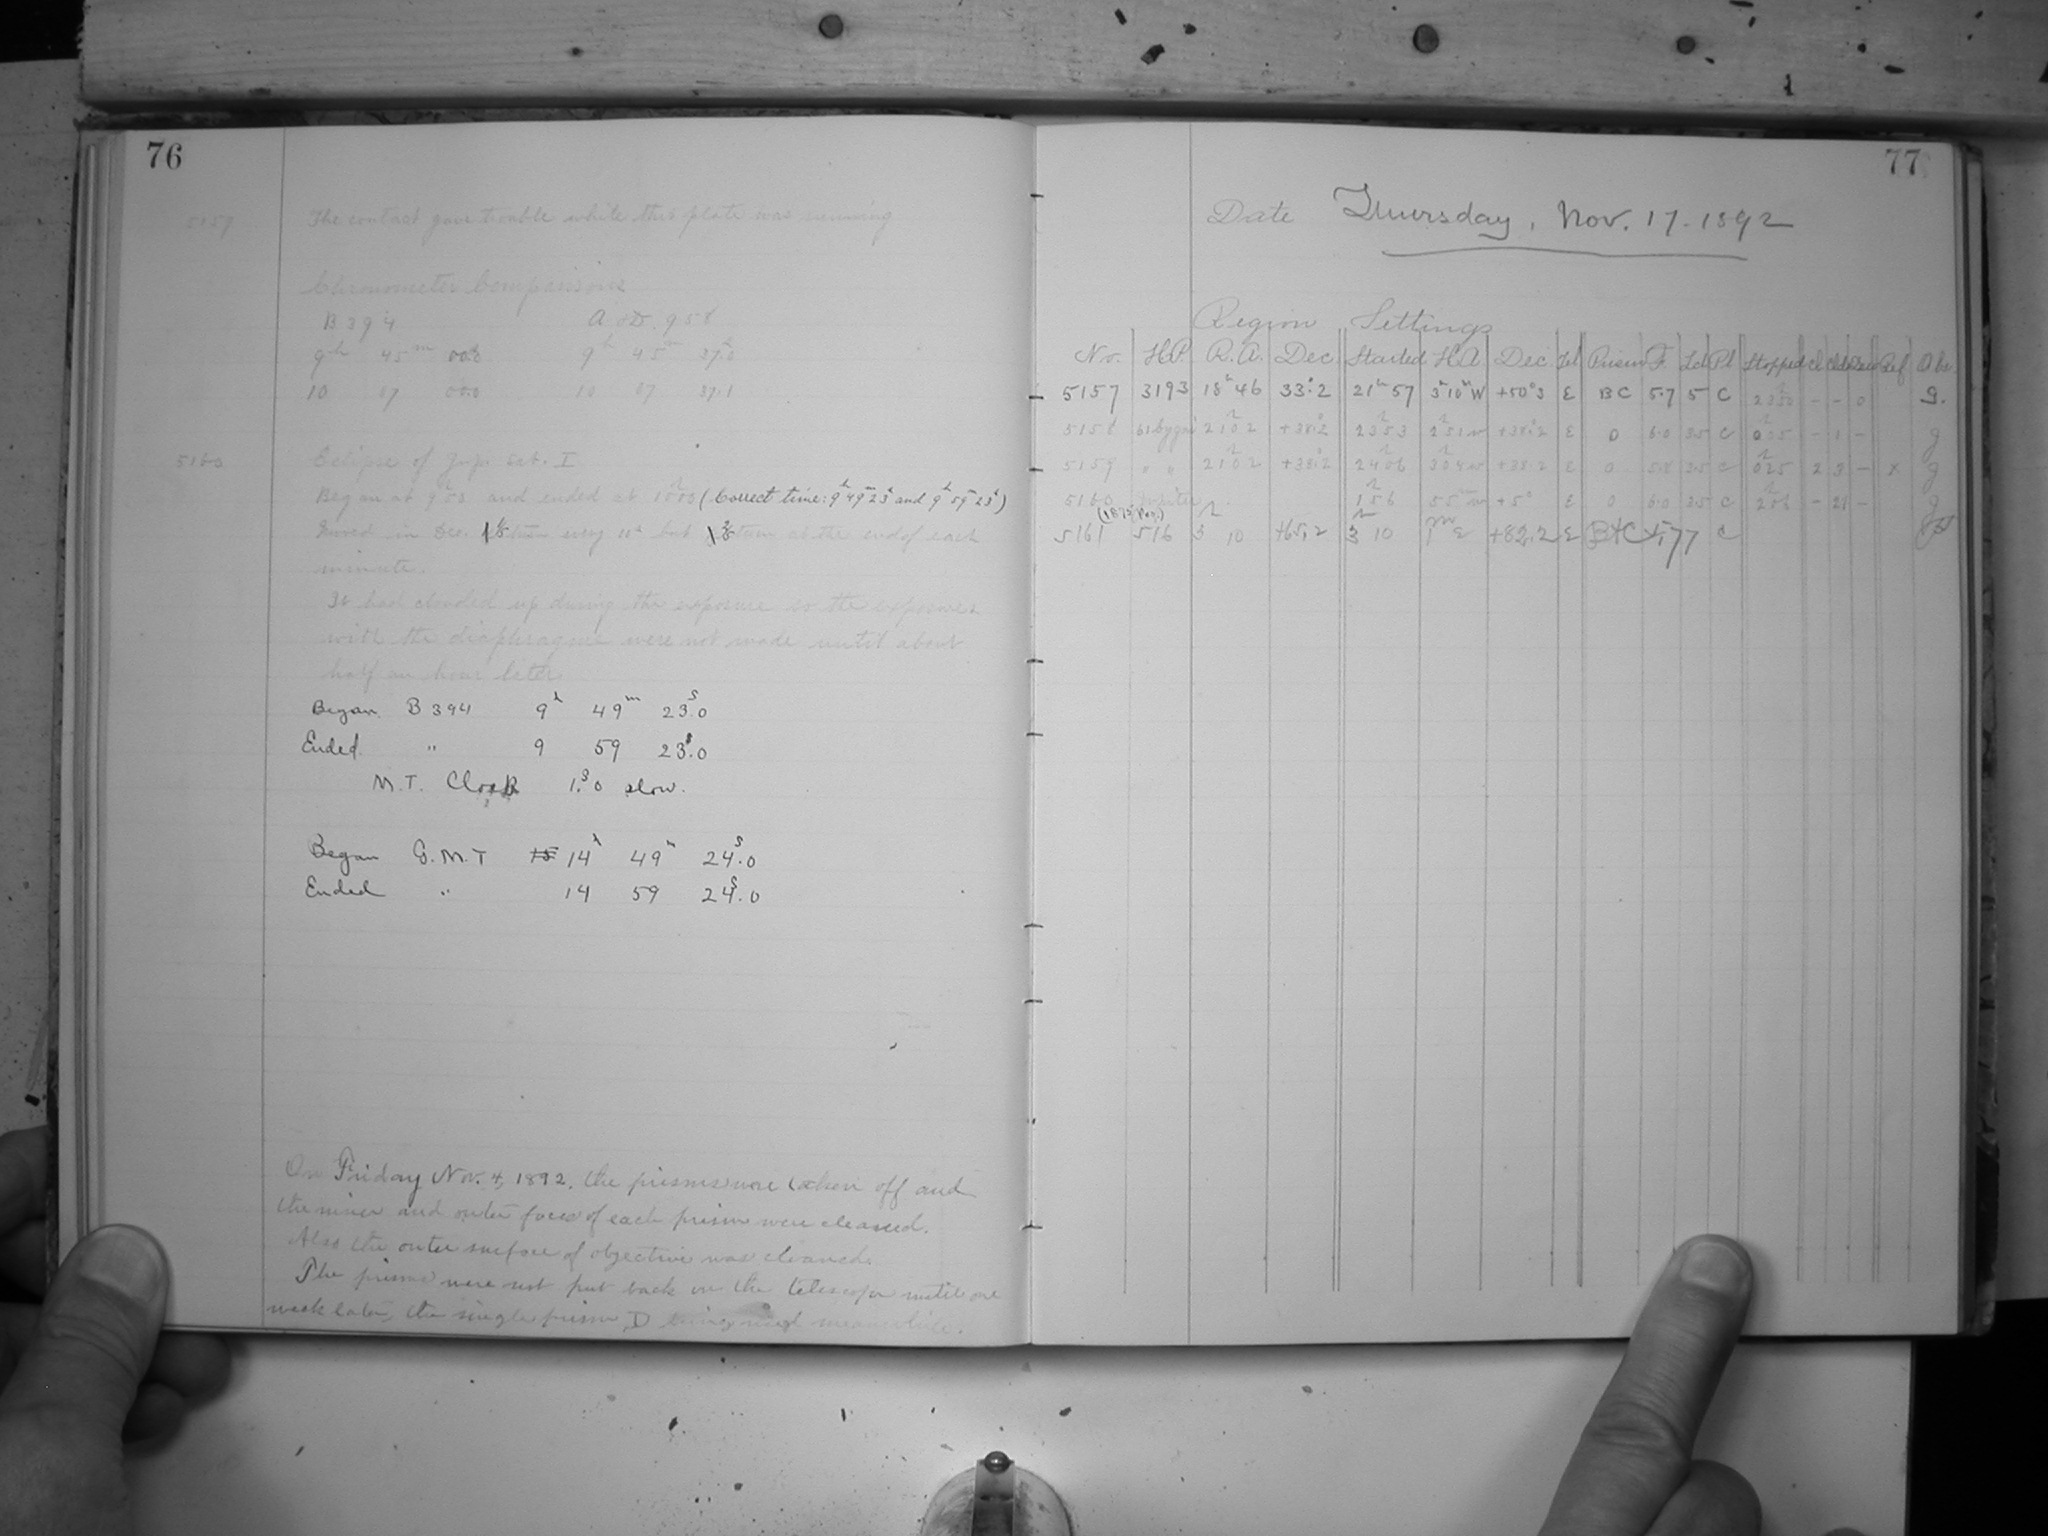 76
5159 The contact gave trouble while this plate was running
Chronometer Comparisons
B 394 A & D. 958
9h 45m 00.0 9h 45m 37.0
10 07 00.0 10 07 37.1
5160 Eclipse of Jup. Sat. I
Began at 9h 50 and ended at 10h 00 (Correct time: 9h 49m 23s and 9h 59m 23s)
Moved in Dec. turn every but turn at the end of each
minute.
It had clouded up during the exposure so the exposures
with the diaphragm were not made until about
half an hour later
Began B 394 9h 49m 23s.0
Ended " 9 59 23s.0
M.T. Clock 1s.0 slow.
Began G.M.T 14h 49m 24s.0
Ended " 14 59 24s.0
On Friday Nov. 4, 1892. the prisms were taken off and
the inner and outer faces of each prism were cleaned.
Also the outer surface of objective was cleaned.
The prisms were not put back on the telescope until one
week later, the single prism D being used meanwhile.
77
Date Thuersday, Nov. 17. 1892
Region Settings
No. H.P. R.A. Dec. Started H.A Dec Tel Prism F. Pl Stopped Cl Ref Obs.
5157 3193 18h 46 33°.2 21h 57 3h 10m W +50°3 E BC 5.7 5 C 2250 - - 0 g.
5158 61 Cygni 21h 02 +38°.2 23h 53 2h 51 w +38°.2 E 0 6.0 35 C 0h 05 - - g
5159 " " 21h 02 +38°.2 24h 06 3h 04 w +38.2 E 0 5.8 35 C 0h 25 2 3 - x g
5160 Jupiter 1h 56 55m w +5° E 0 6.0 35 C 2h 06 - 21 - g
(1875 Pos.)
5161 516 3h 10 +65.2 3h 10 1m E +82.2 E B+C 5.77 C